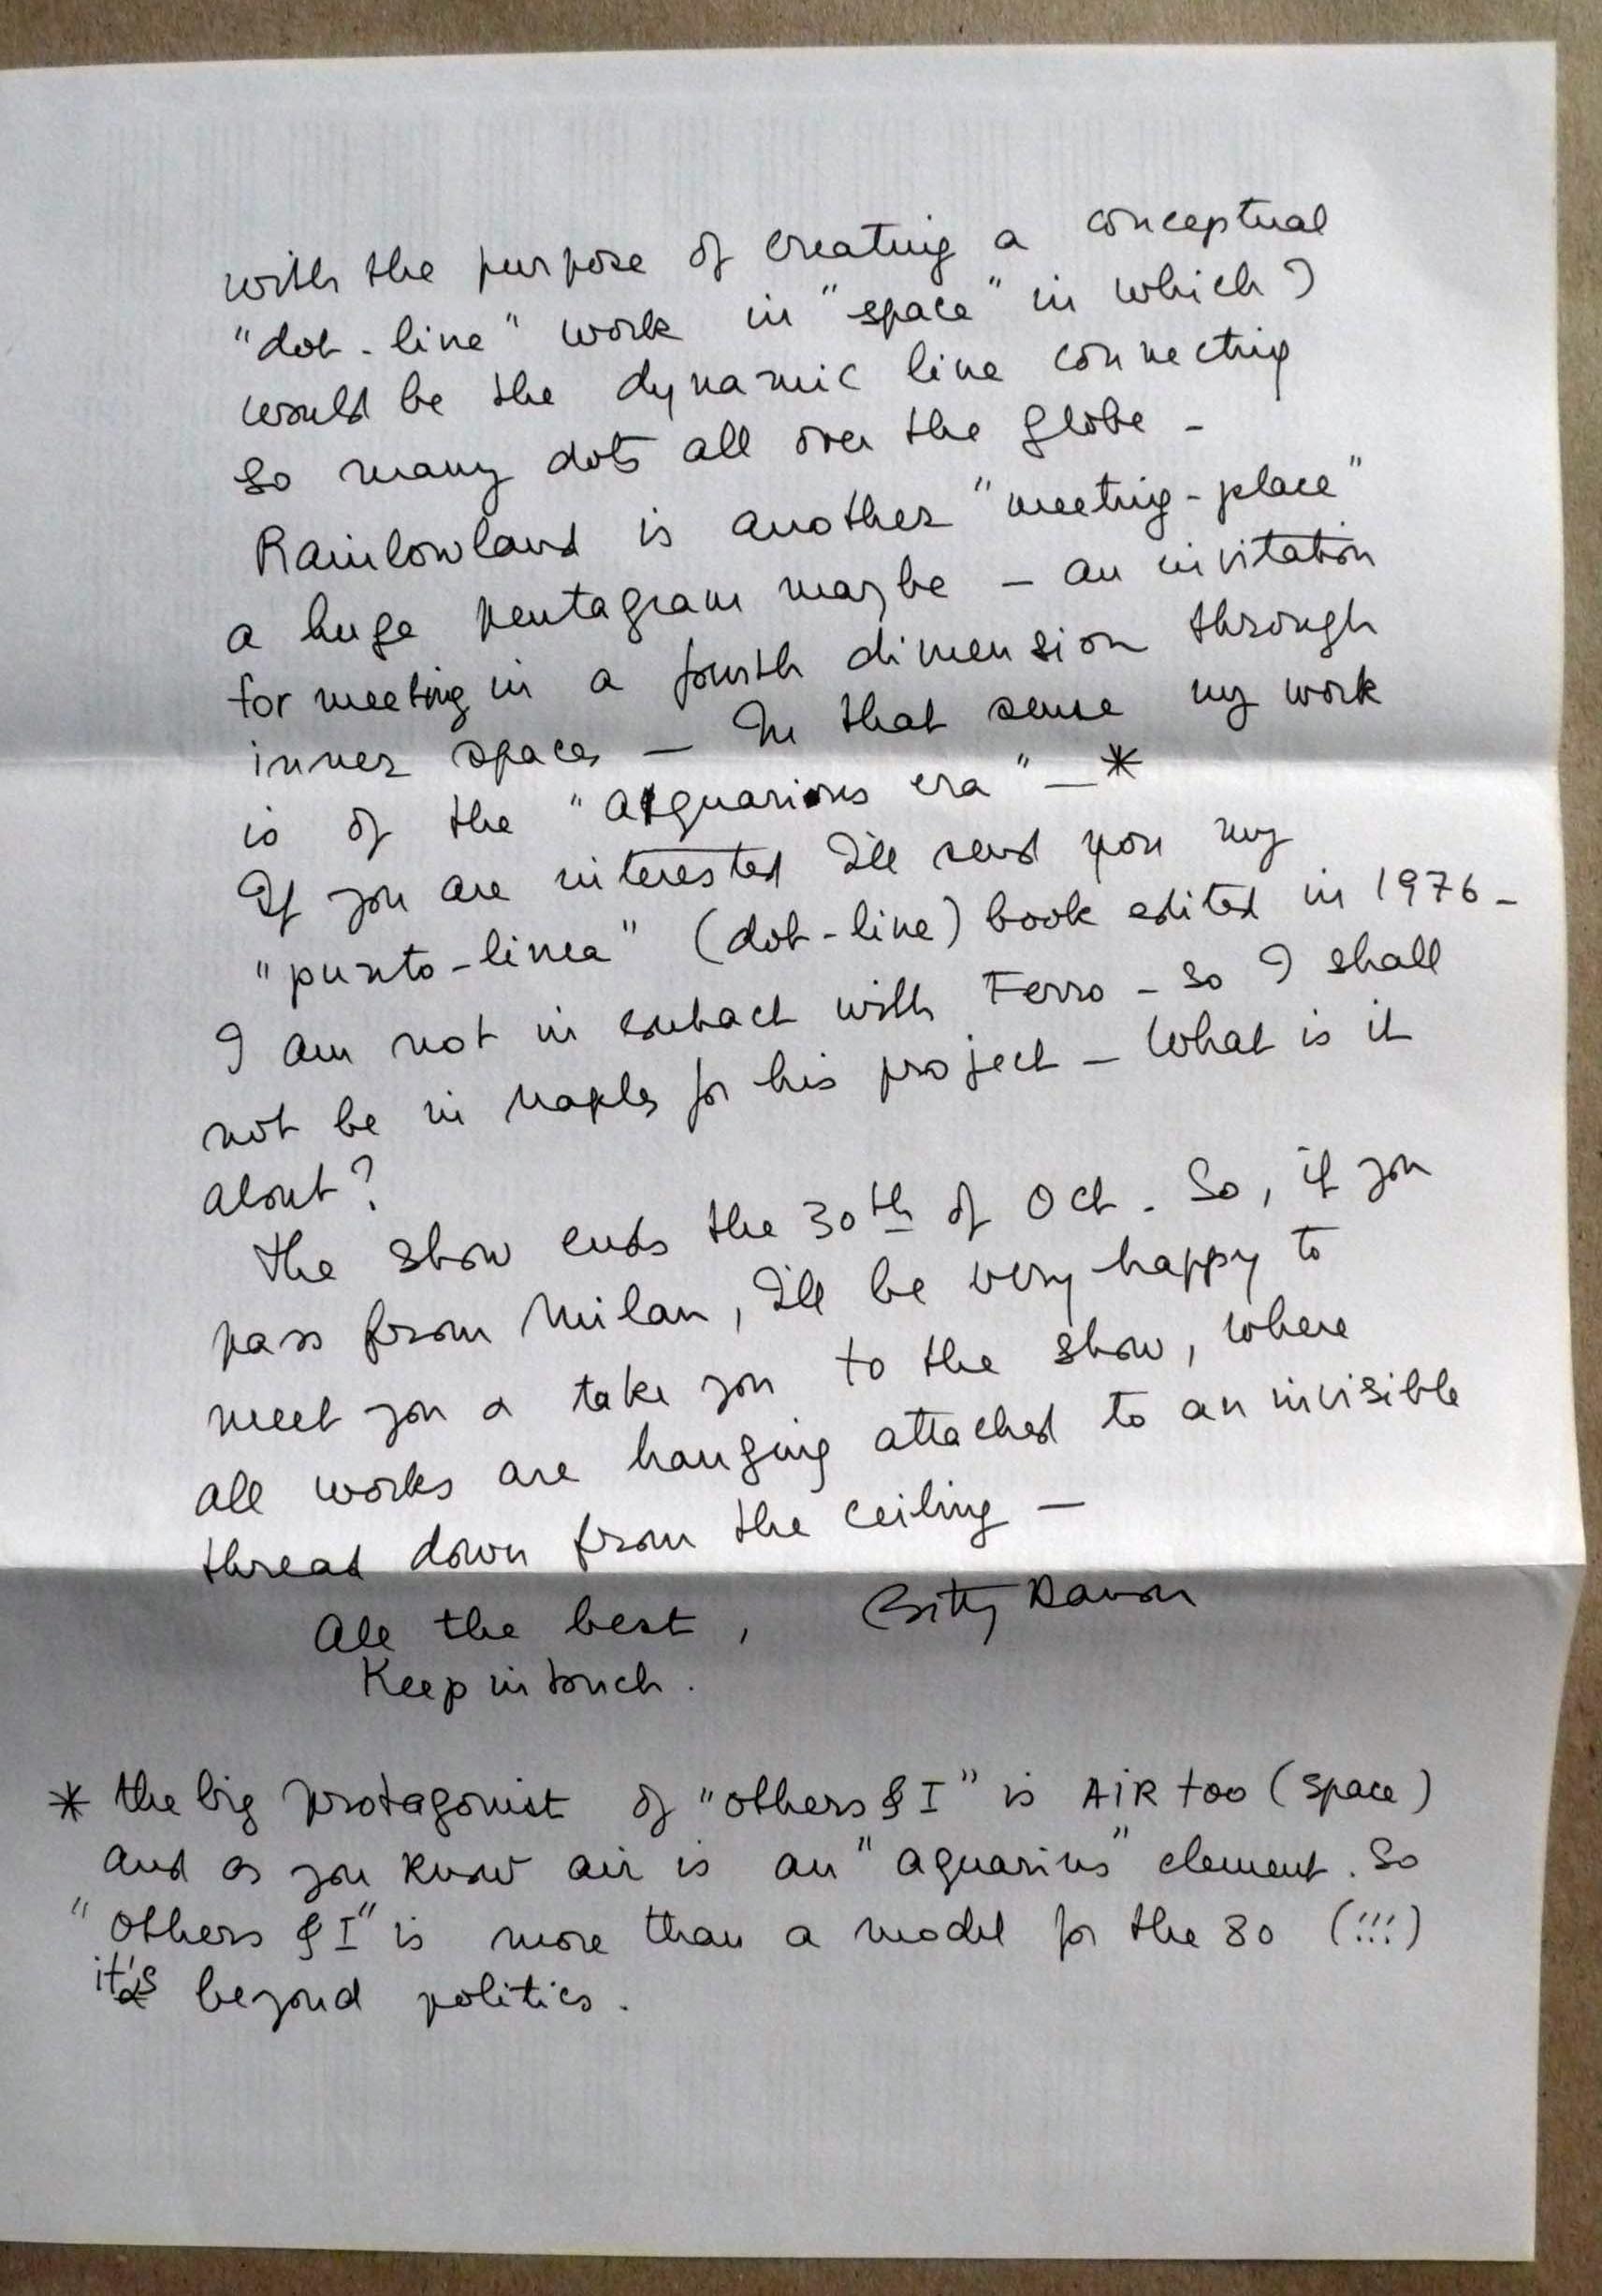 with the purpose of creating a conceptual
"dot-line" work in "space" in which I
would be the dynamic line connecting
so many dots all over the globe -
Rainbowland is another "meeting-place"
a huge pentagram maybe - an invitation
for meeting in a fourth dimension through
inner spaces - In that sense my work
is of the "aquarious era" - *
If you are interested I'll send you my
"punto-linea" (dot-line) book edited in 1976 -
I am not in contact with Ferro - so I shall
not be in Naples for his project - What is it
about?
The show ends the 30th of Oct. So, if you
pass from Milan, I'll be very happy to
meet you & take you to the show, where
all works are hanging attached to an invisible
thread down from the ceiling -
All the best, Betty Danon
Keep in touch.
* the big protagonist of "others & I" is AIR too (space)
and as you know air is an "aquarius" element. So
"Others & I" is more than a model for the 80 (!!!)
it's beyond politics.